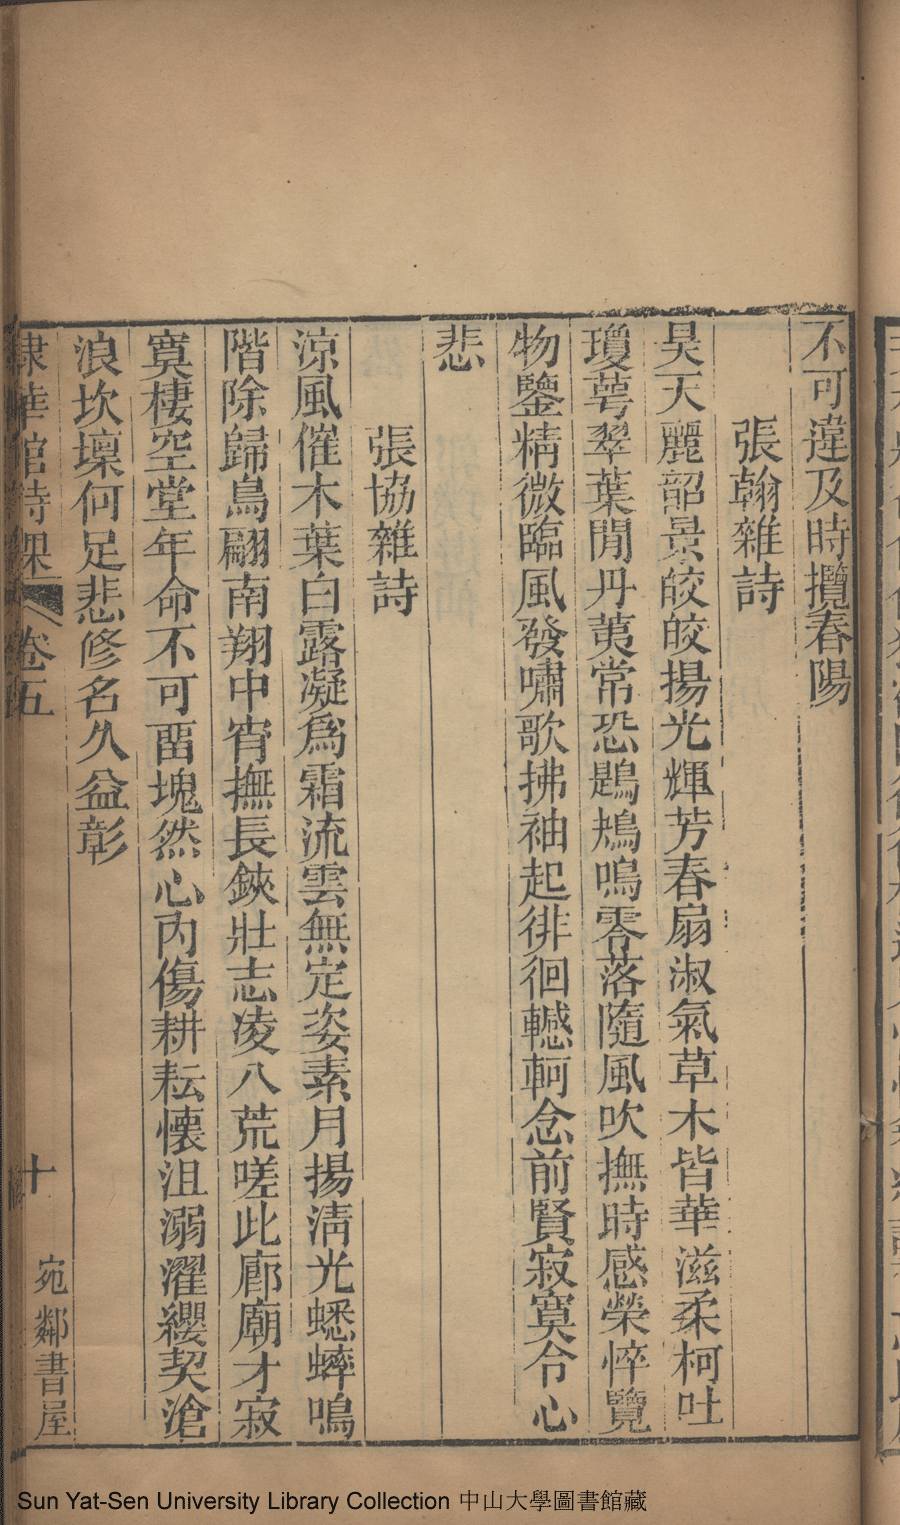 不可違及時攬春陽
張翰雜詩
昊天麗韶景皎皎揚光輝芳春扇淑氣草木皆華滋柔柯吐
瓊萼翠葉閒丹荑常恐鶗鴂鳴零落隨風吹撫時感榮悴覽
物鑒精微臨風發嘯歌拂袖起徘徊轗軻念前賢寂寞令心
悲
張協雜詩
涼風催木葉白露凝爲霜流雲無定姿素月揚淸光蟋蟀鳴
階除歸鳥翩南翔中宵撫長鋏壯志凌八荒嗟此廊廟才寂
寞棲空堂年命不可畱塊然心內傷耕耘懷沮溺濯纓契滄
浪坎壈何足悲修名久益彰
棣華館詩課 卷五 十 宛鄰書屋
Sun Yat-Sen University Library Collection 中山大學圖書館藏